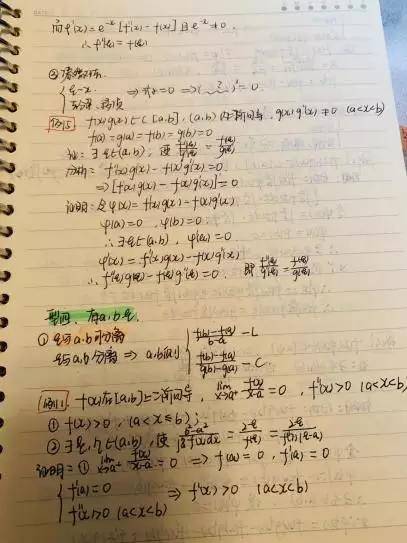 而 φ'(x)=e⁻ˣ[f'(x)-f(x)] 且 e⁻ˣ≠0.
∴ f'(ξ)=f(ξ)
ξ→x
⇒ ⇒( )'=0.
例5 f(x), g(x)∈C[a,b], (a,b)内二阶可导, g(x)g''(x)≠0 (a<x<b)
f(a)=g(a)=f(b)=g(b)=0
证: ∃ξ∈(a,b), 使 f''(ξ)/g''(ξ) = f(ξ)/g(ξ)
分析: f''(x)g(x)-f(x)g''(x)=0
⇒[f'(x)g(x)-f(x)g'(x)]'=0
证明: 令φ(x)=f'(x)g(x)-f(x)g'(x)
φ(a)=0 φ(b)=0
∴∃ξ∈(a,b), φ'(ξ)=0
φ'(x)=f''(x)g(x)-f(x)g''(x)
∴ f''(ξ)g(ξ)-f(ξ)g''(ξ)=0. 即 f''(ξ)/g''(ξ) = f(ξ)/g(ξ)
型四、有a,b,ξ.
① ξ与a,b可分离
ξ与a,b分离 ⇒ a,b侧 { (f(b)-f(a))/(b-a) — L
(f(b)-f(a))/(g(b)-g(a)) — C
例1. f(x)在[a,b]上二阶可导, lim x→a⁺ f(x)/(x-a)=0, f''(x)>0 (a<x<b)
① f(x)>0, (a<x≤b);
② ∃ξ,η∈(a,b), 使 (b²-a²)/∫f(x)dx = 2ξ/f(ξ) = 2ξ/(f'(η)(ξ-a))
证明: ① lim x→a⁺ f(x)/(x-a)=0 ⇒ f(a)=0, f'(a)=0
{ f'(a)=0 ⇒ f'(x)>0 (a<x<b)
f''(x)>0 (a<x<b)